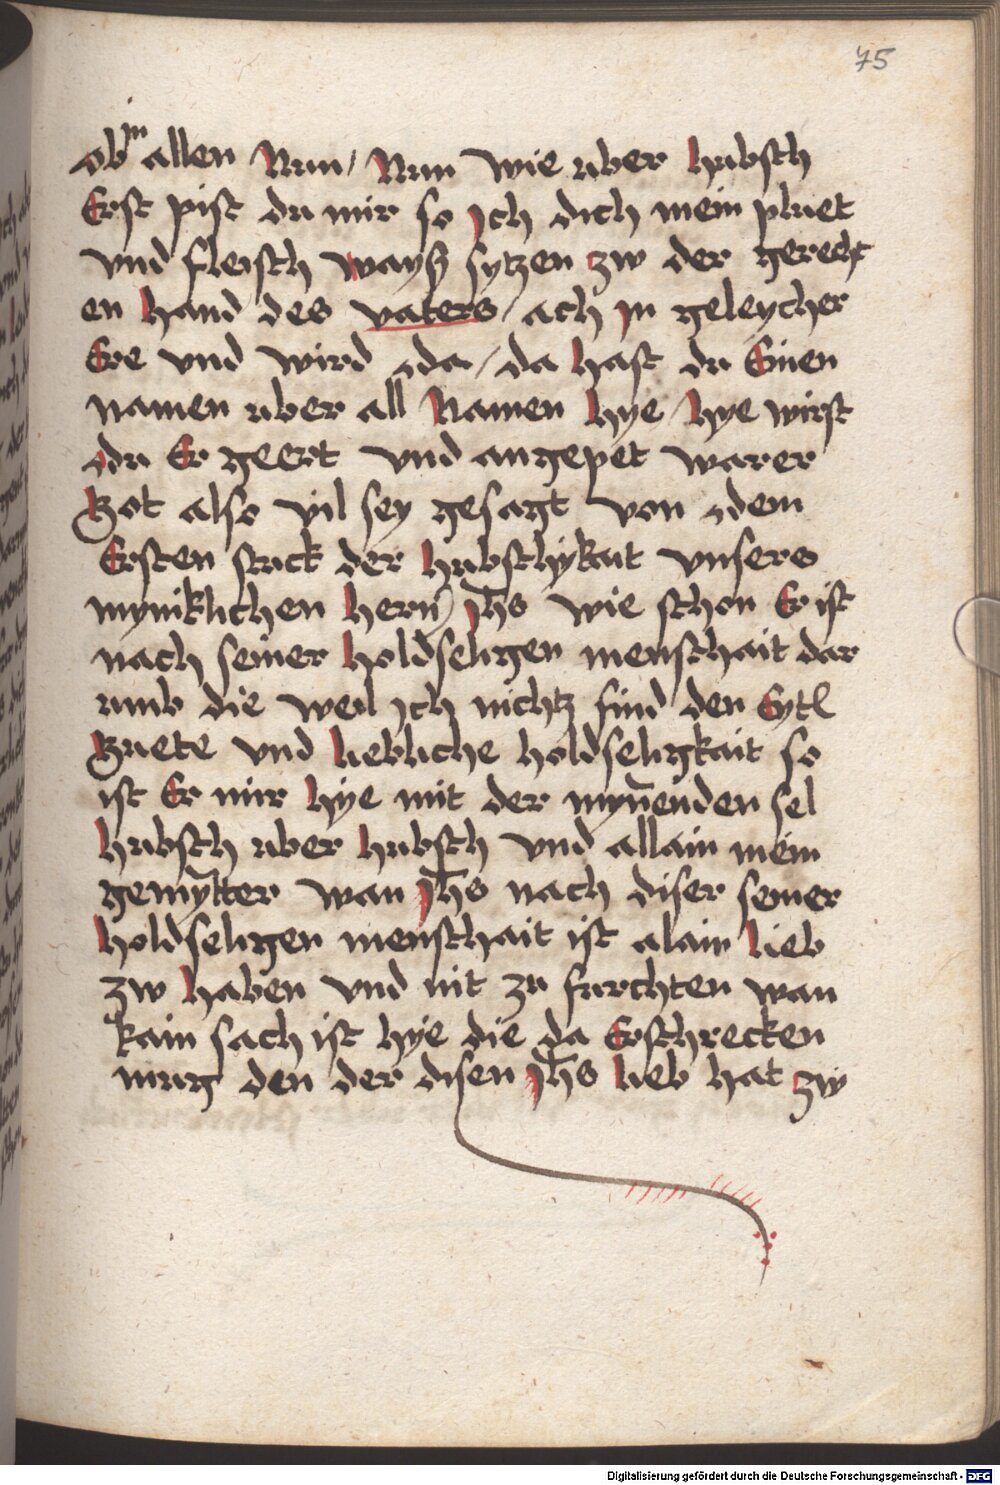 75
ob in allen Nun / Nun wie uber hubsch
Erst pist du mir so ich dich mein pluet
vnd fleisch wayß sytzen zw der gerecht
en hand des vaters / ach in geleycher
Ere vnd wird da / da hast du Einen
namen uber all Namen hye / hye wirst
du Er geert vnd angepet warer
got also vil sey gesagt von dem
Ersten stuck der hubschykait vnsers
myniklichen hern̄ Jh̄s wie schon Er ist
nach seiner holdseligen menschait dar
umb die weil ich nichtz find den Eytl
guete vnd liebliche holdseligkait so
ist Er mir hye mit der myn̄enden sel
hubsch uber hubsch vnd allain mein
wan Jh̄s nach diser seiner
holdseligen menschait ist alain lieb
zw haben vnd nit zu furchten wan
kain sach ist hye die da Erschrecken
mug den der disen Jh̄s lieb hat zw
Digitalisierung gefördert durch die Deutsche Forschungsgemeinschaft - DFG